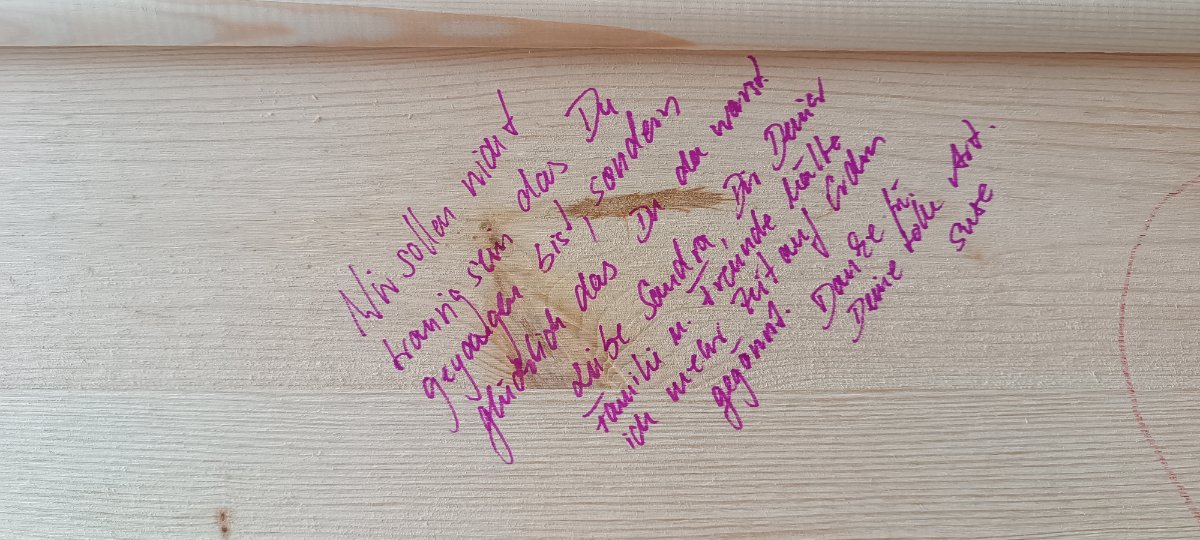 Wir sollen nicht
traurig sein das Du
gegangen bist, sondern
glücklich das Du da warst.
Liebe Sandra, Dir Deiner
Familie u. Freunde hätte
ich mehr Zeit auf Erden
gegönnt. Danke für
Deine tolle Art.